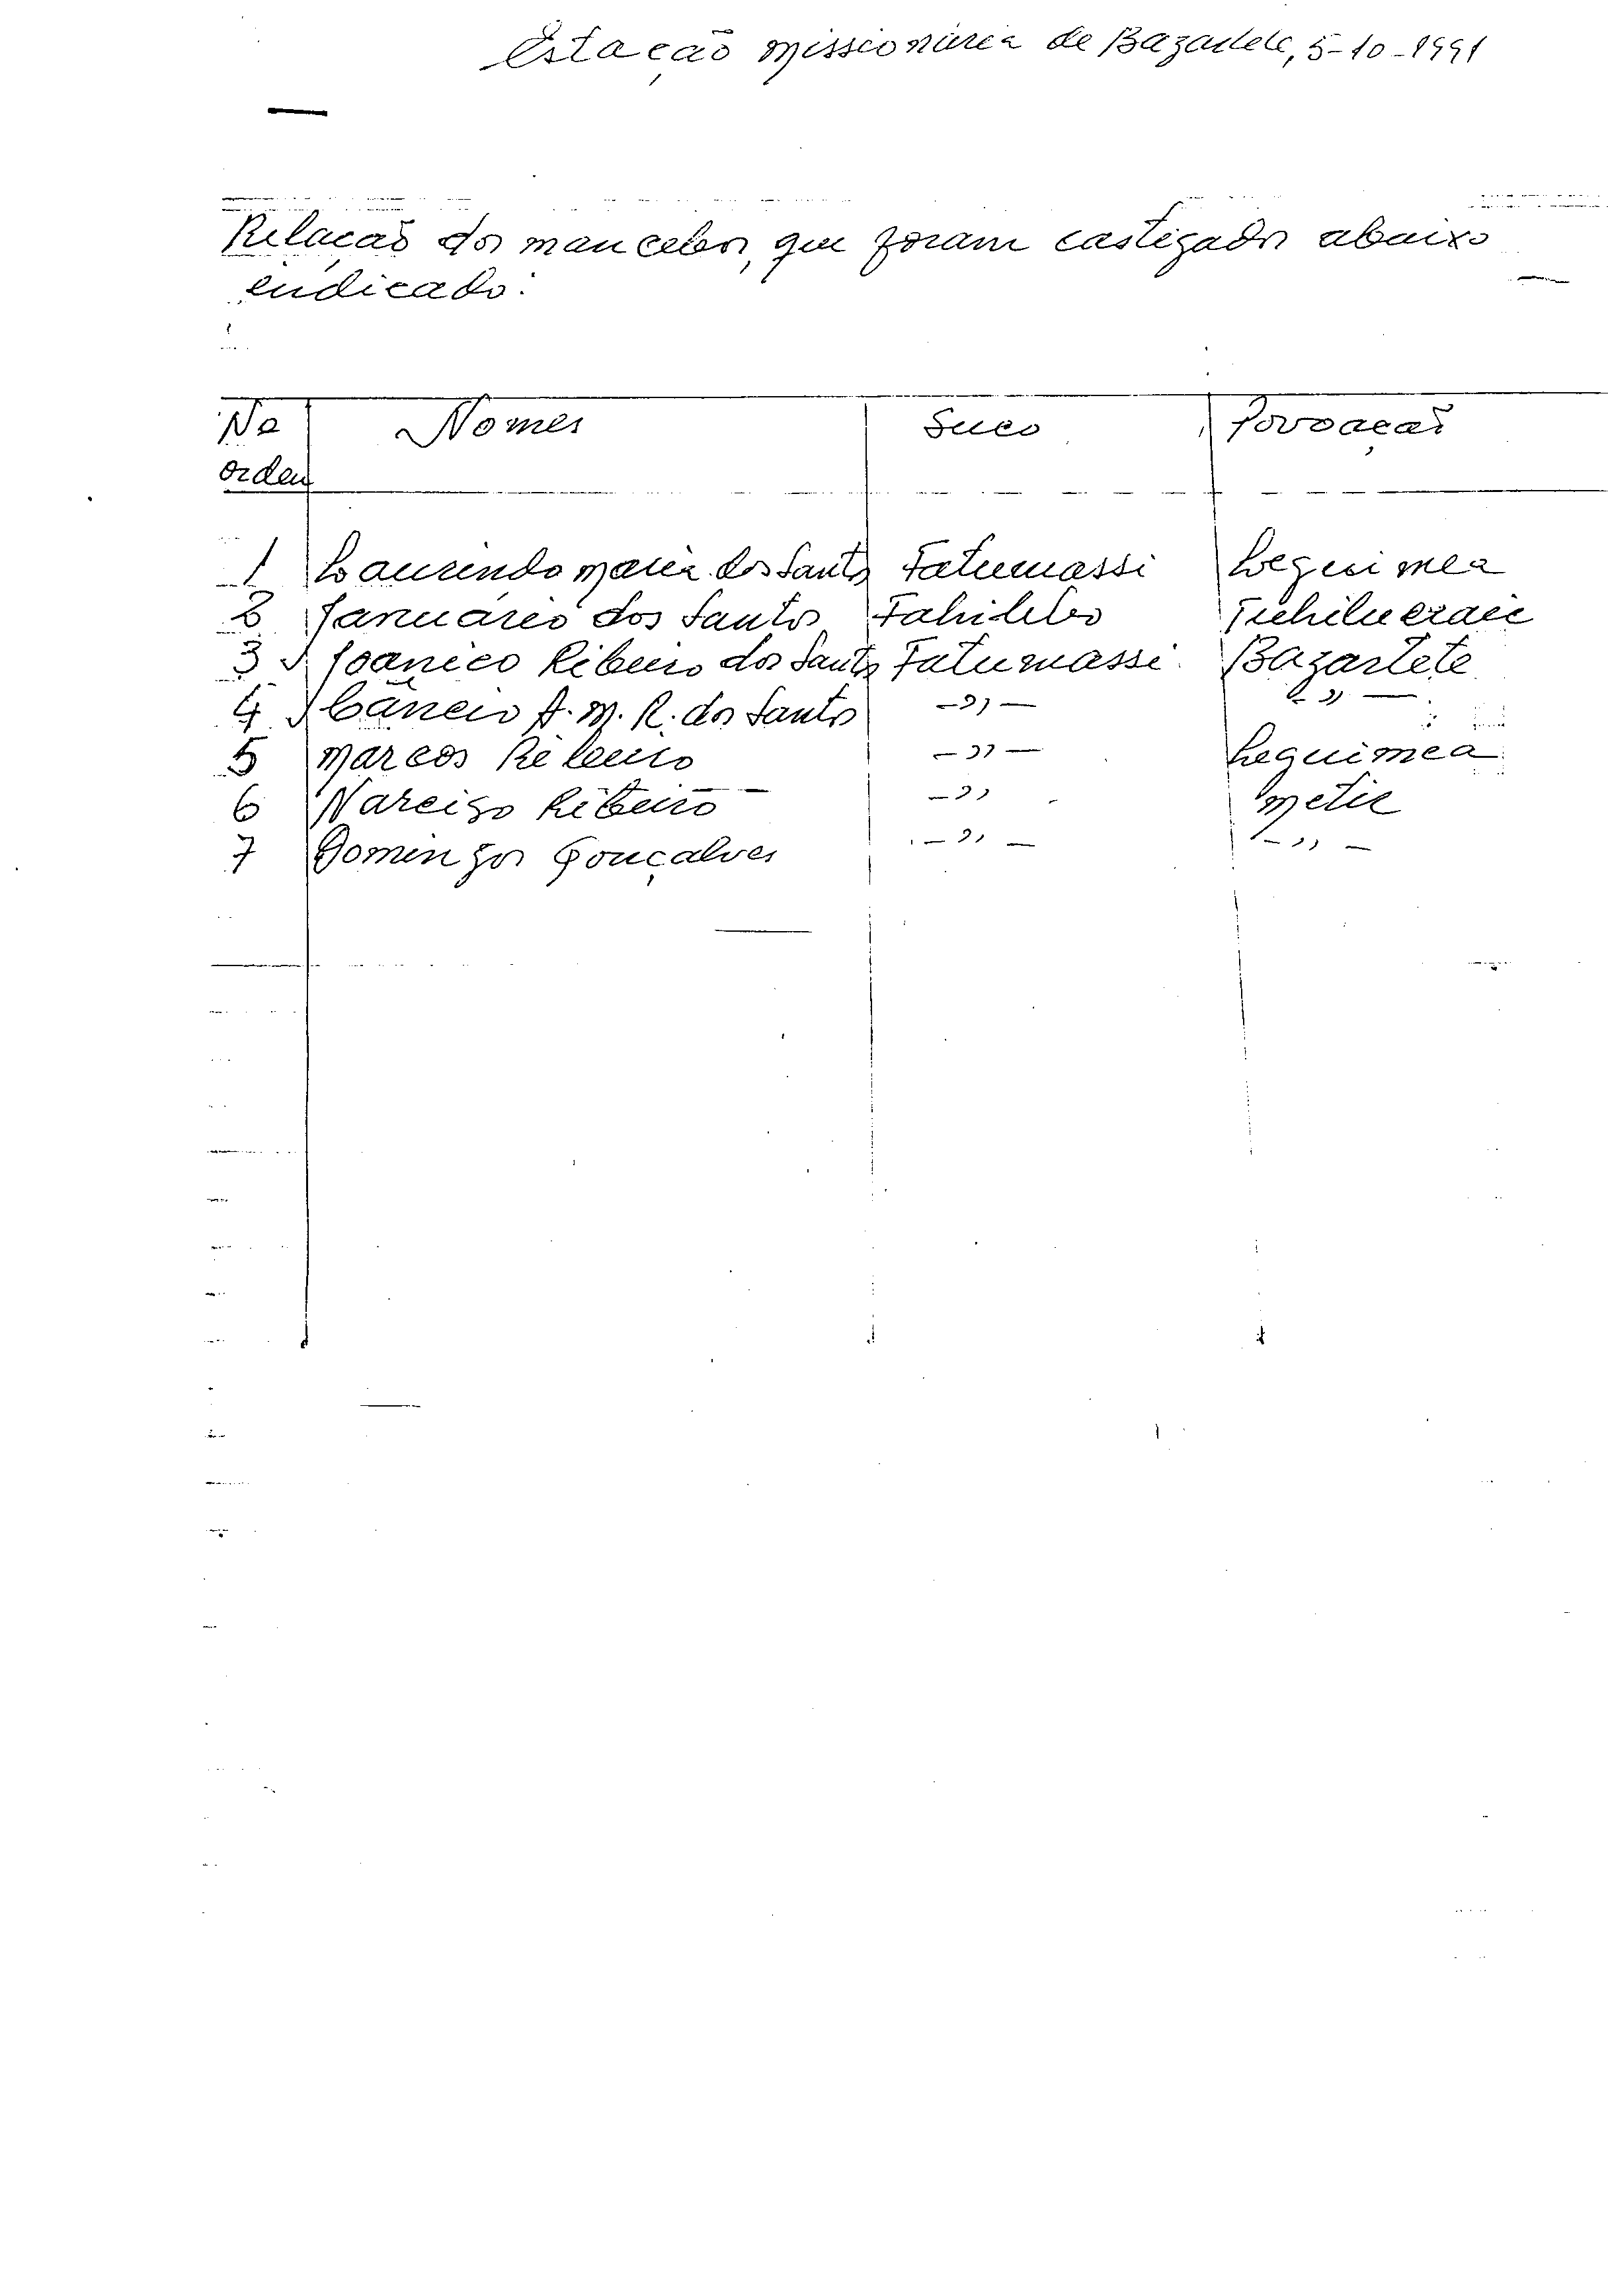 Estacão Missionária de Bazartete, 5-10-1991
Relacão dos mancebos, que foram castigados abaixo
indicado:
No Nomes Suco Povoacão
orden
1 Laurindo Maria dos Santos Fatumassi Leguimea
2 Januário dos Santos Fahilebo
3 Joanico Ribeiro dos Santos Fatumasse Bazartete
4 A. M. R. dos Santos —"— —"—
5 Marcos Ribeiro —"— Leguimea
6 Narcizo Ribeiro —"— Metir
7 Domingos Gonçalves —"— —"—